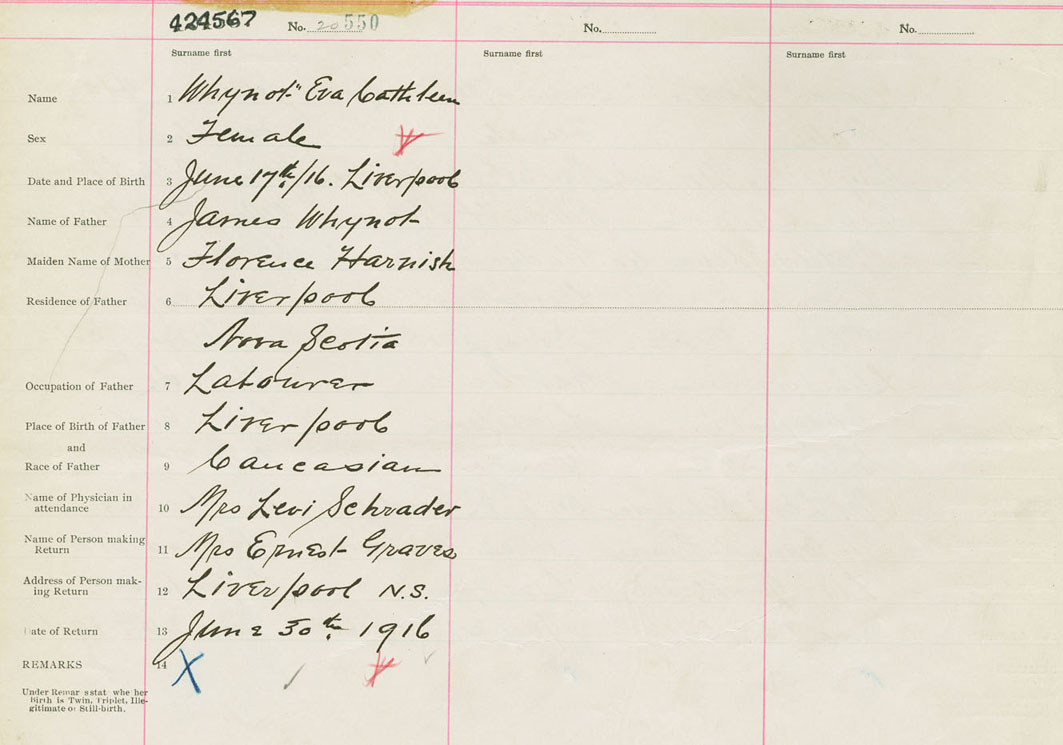 424567 No. 20550 No. No.
Surname first Surname first Surname first
Name 1 Whynot" Eva Cathleen
Sex 2 Female
Date and Place of Birth 3 June 17th/16. Liverpool
Name of Father 4 James Whynot
Maiden Name of Mother 5 Florence Harnish
Residence of Father 6 Liverpool
Nova Scotia
Occupation of Father 7 Labourer
Place of Birth of Father 8 Liverpool
and
Race of Father 9 Caucasian
Name of Physician in
attendance 10 Mrs Levi Schrader
Name of Person making
Return 11 Mrs Ernest Graves
Address of Person mak-
ing Return 12 Liverpool N.S.
Date of Return 13 June 30th. 1916
REMARKS 14 X
Under Remar s stat whe her
Birth is Twin, Triplet, Ille-
gitimate or Still-birth.